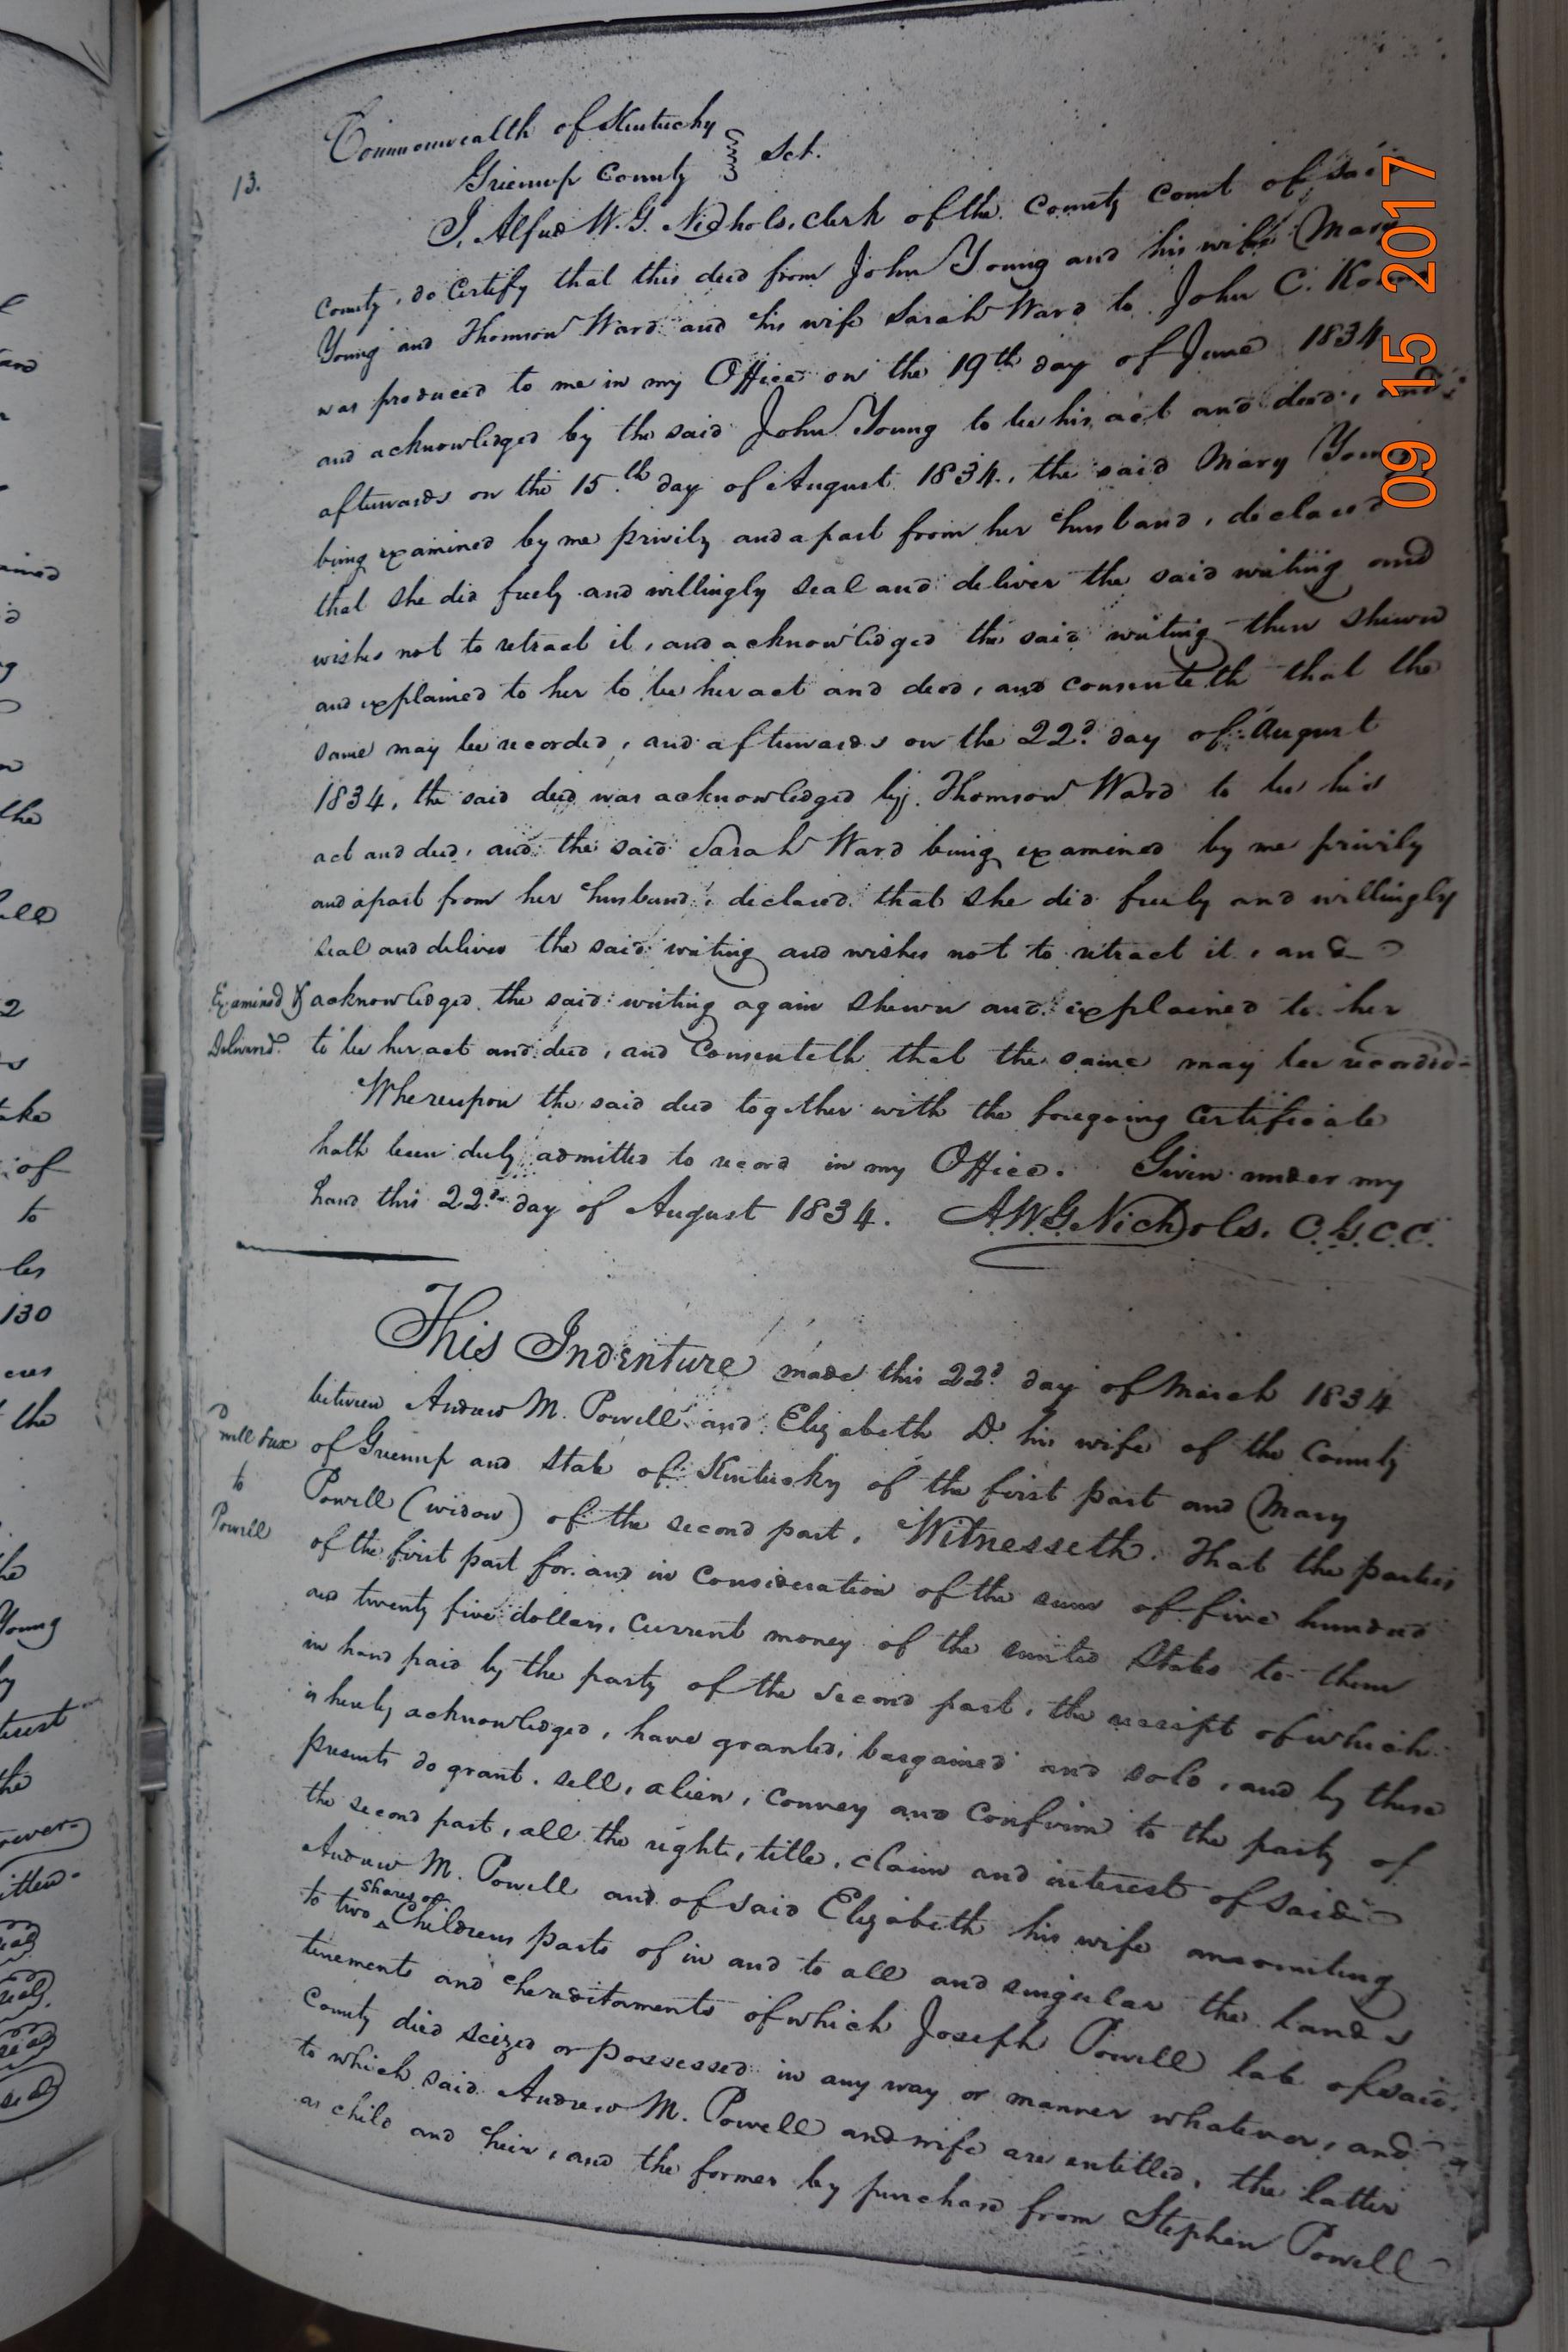 13.
Commonwealth of Kentucky
Greenup County } Sct.
I, Alfred W. G. Nichols, clerk of the County Court of said
County, do Certify that this deed from John Young and his wife Mary
Young and Thomson Ward and his wife Sarah Ward to John C.
was produced to me in my Office on the 19th day of June 1834
and acknowledged by the said John Young to be his act and deed, and
afterwards on the 15th day of August 1834, the said Mary Young
being examined by me privily and apart from her husband, declared
that she did freely and willingly seal and deliver the said writing and
wishes not to retract it, and acknowledged the said writing then shewn
and explained to her to be her act and deed, and consenteth that the
same may be recorded, and afterwards on the 22d day of August
1834, the said deed was acknowledged by Thomson Ward to be his
act and deed, and the said Sarah Ward being examined by me privily
and apart from her husband, declared that she did freely and willingly
seal and deliver the said writing and wishes not to retract it, and
Examined & acknowledged the said writing again shewn and explained to her
Delivered. to be her act and deed, and Consenteth that the same may be recorded=
Whereupon the said deed together with the foregoing Certificate
hath been duly admitted to record in my Office. Given under my
hand this 22d day of August 1834. A.W.G. Nichols, C.G.C.C.
This Indenture made this 22d day of March 1834
between Andrew M. Powell and Elizabeth D. his wife of the County
of Greenup and State of Kentucky of the first part and Mary
to
Powell
Powell (widow) of the second part, Witnesseth. That the parties
of the first part for and in consideration of the sum of five hundred
and twenty five dollars, current money of the united States to them
in hand paid by the party of the second part, the receipt of which
is hereby acknowledged, have granted, bargained and sold, and by these
presents do grant, sell, alien, convey and confirm to the party of
the second part, all the right, title, claim and interest of said
Andrew M. Powell and of said Elizabeth his wife amounting
to two shares of Childrens parts of in and to all and singular the lands
tenements and hereditaments of which Joseph Powell late of said
County died seized or possessed in any way or manner whatever, and
to which said Andrew M. Powell and wife are entitled, the latter
as child and heir, and the former by purchase from Stephen Powell
09 15 2017